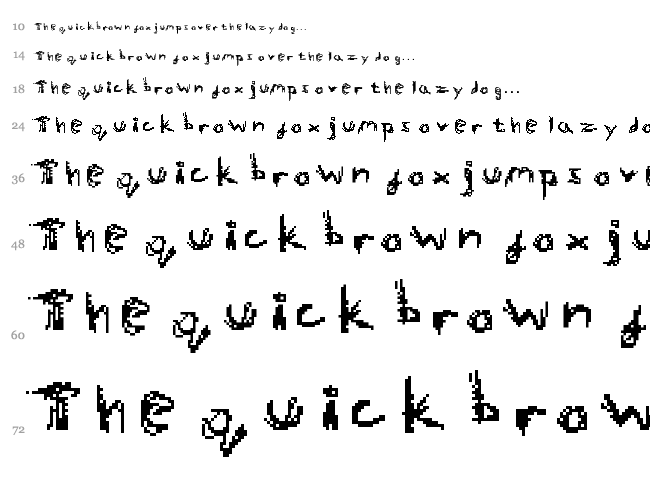 10 The quick brown fox jumps over the lazy dog...
14 The quick brown fox jumps over the lazy dog...
18 The quick brown fox jumps over the lazy dog...
24 The quick brown fox jumps over the lazy do
36 The quick brown fox jumps ove
48 The quick brown fox ju
60 The quick brown f
72 The quick brow